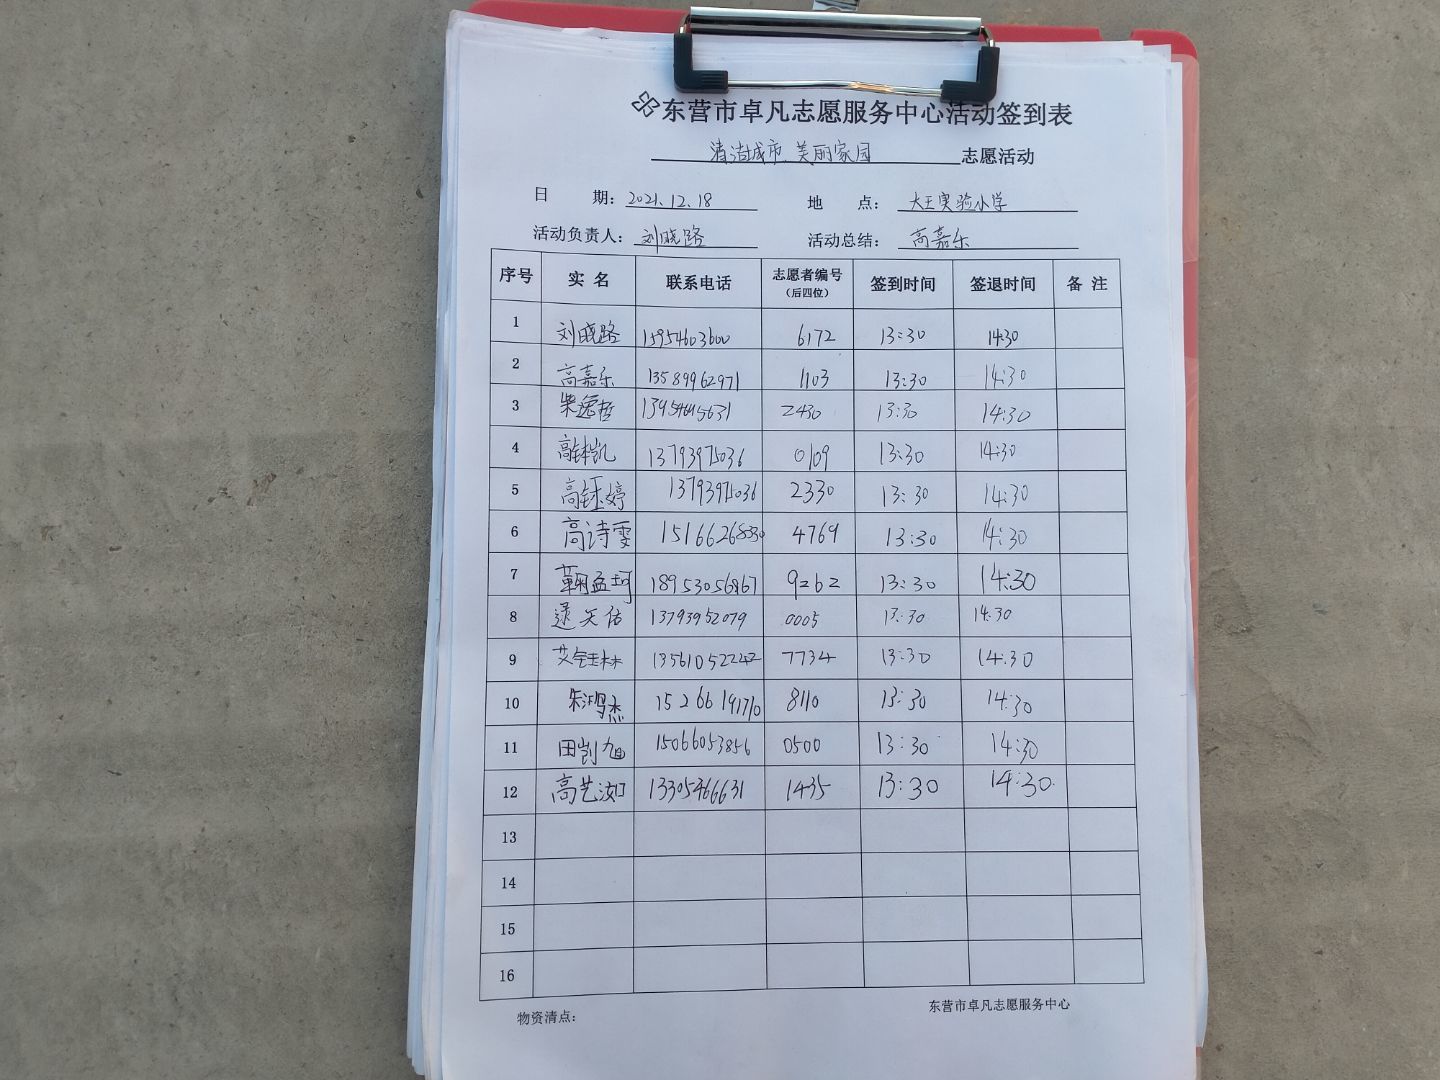 东营市卓凡志愿服务中心活动签到表
清洁城市、美丽家园 志愿活动
日 期：2021.12.18 地 点：大王实验小学
活动负责人：刘晓路 活动总结：高嘉乐
序号 实名 联系电话 志愿者编号（后四位） 签到时间 签退时间 备注
1 刘晓路 15954603600 6172 13:30 14:30
2 高嘉乐 13589962971 1103 13:30 14:30
3 2430 13:30 14:30
4 13793975036 0109 13:30 14:30
5 高钰婷 13793975036 2330 13:30 14:30
6 高诗雯 4769 13:30 14:30
7 鞠孟珂 9262 13:30 14:30
8 逯天佑 13793952079 0005 13:30 14:30
9 艾钰林 7734 13:30 14:30
10 朱鸿杰 15266191710 8110 13:30 14:30
11 田凯旭 15066053856 0500 13:30 14:30
12 高艺汝 13305466631 1435 13:30 14:30
13
14
15
16
物资清点： 东营市卓凡志愿服务中心